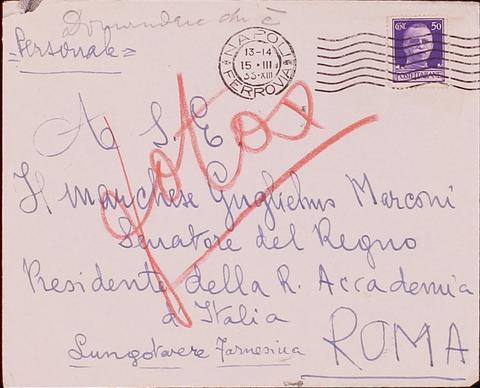 Domandare chi è
=Personale=
NAPOLI
13-14
15·III
35-XIII
FERROVIA
50
A S. E.
Il Marchese Guglielmo Marconi
Senatore del Regno
Presidente della R. Accademia
d'Italia
Lungotevere Farnesina
ROMA